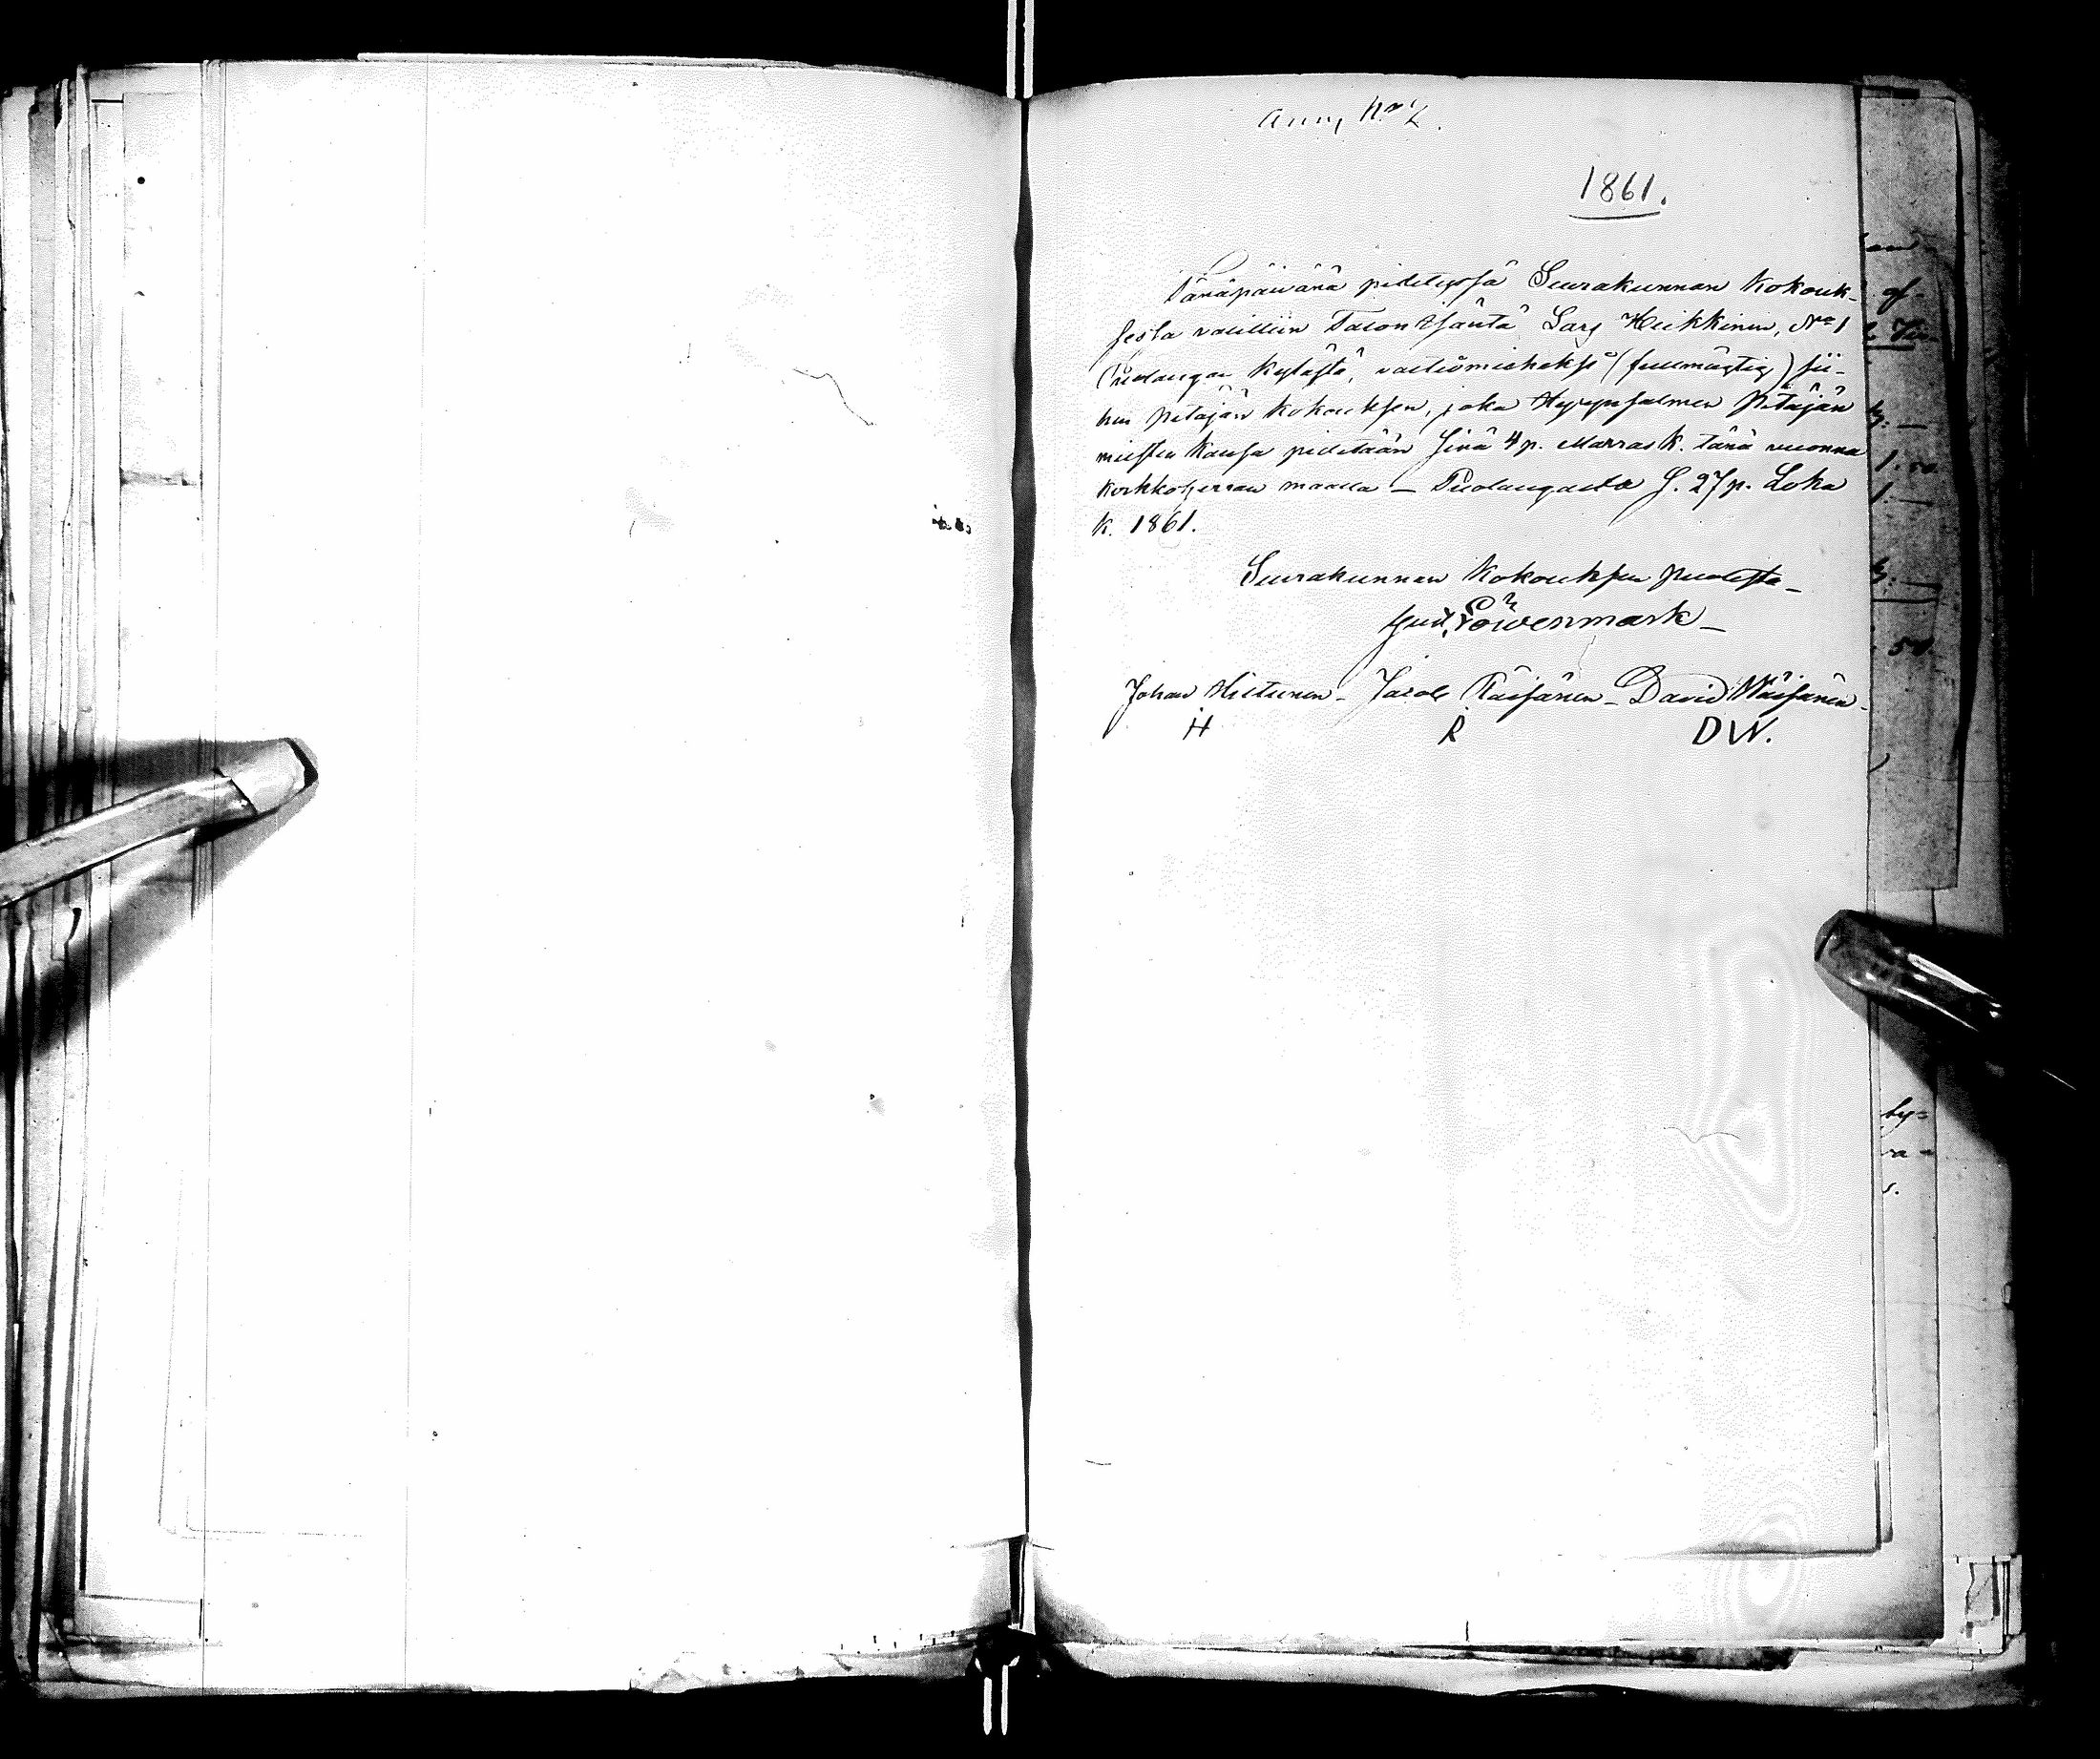 N:o 2.
1861.
Tänäpäivänä pidetyssä Seurakunnan Kokouk-
sesta valittiin Talon Isäntä Lars Heikkinen, N:o 1
Puolangan kylästä, valtuŏmieheksi (fullmägtig) sii-
hen pitäjän kokouksen, joka Hyrynsalmen Pitäjän
miesten kansa pidetään sinä 4 p. Marras K. tänä vuonna
kirkkoherran maalla — Puolangalta S. 27 p. Loka
K. 1861.
Seurakunnan Kokouksen puolesta —
Gust. Löwenmark —
Johan Hiltunen — Jacob Räisänen — David Wäisänen —
H R DW.
af-
1. 50
1. —
50
by=
ra =
s.